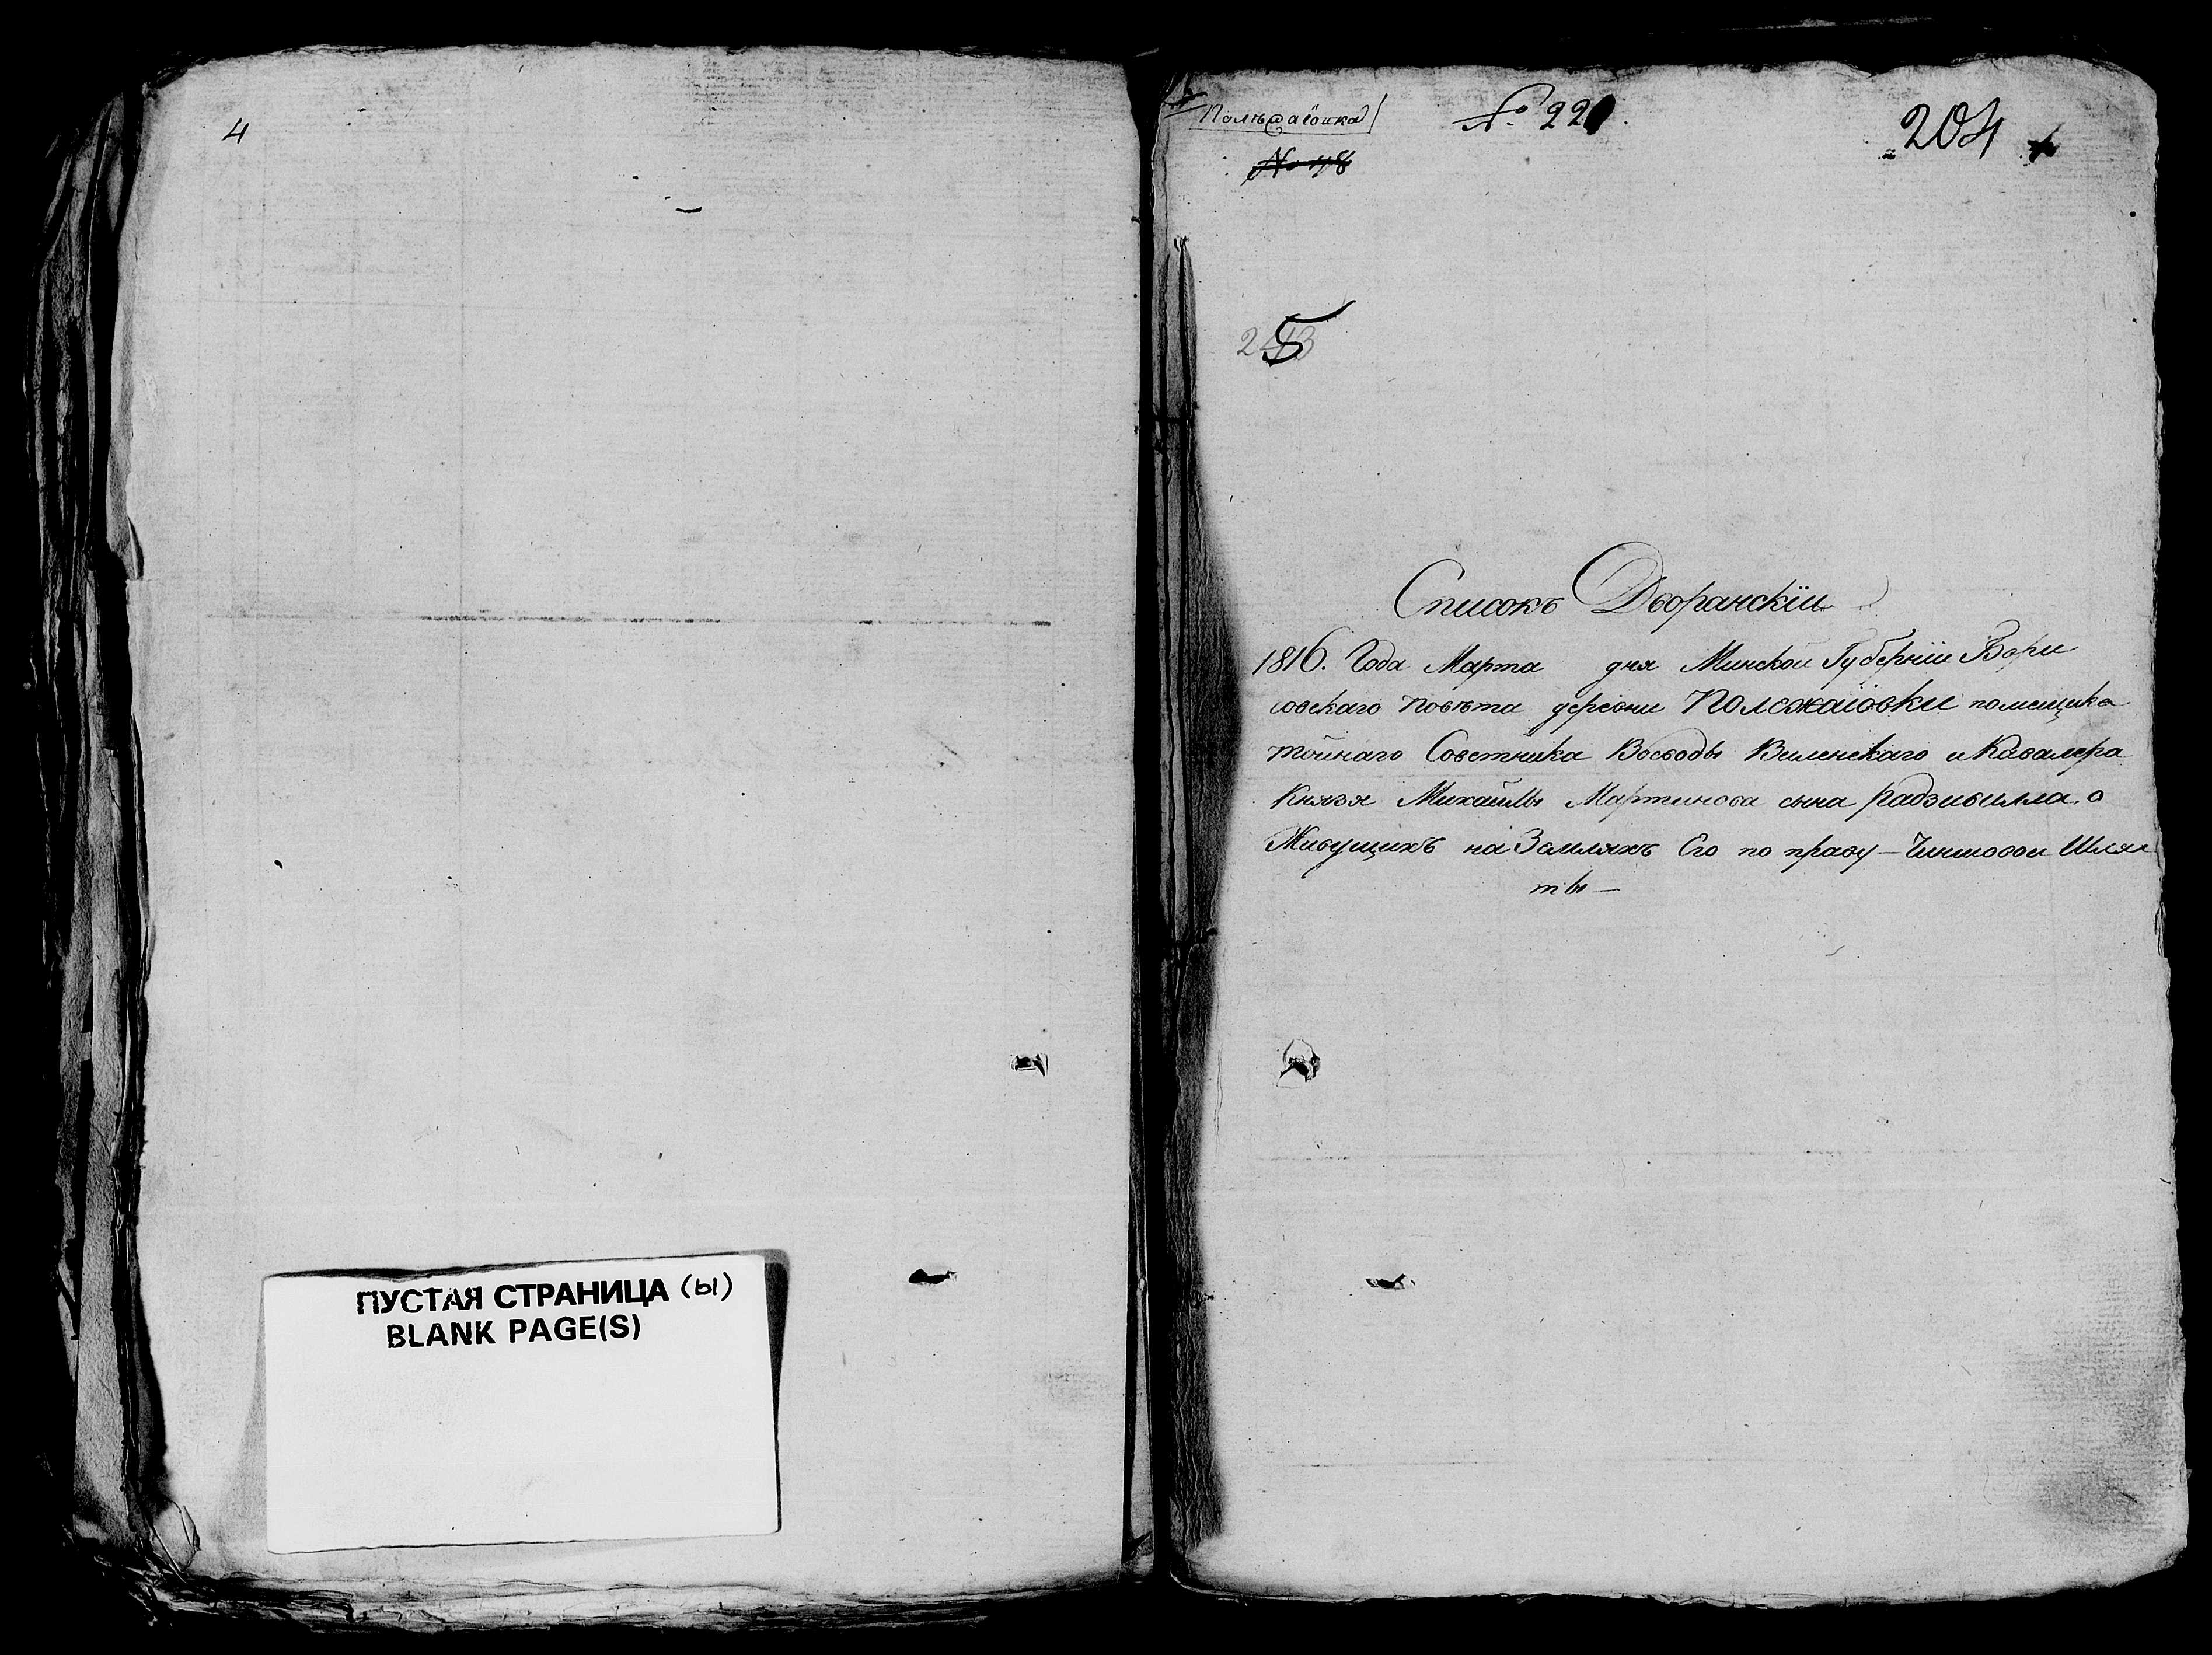 4
ПУСТАЯ СТРАНИЦА (ы)
BLANK PAGE(S)
№ 221
204
№ 48
5
Списокъ Дворанскіи
1816. Года Марта дня Минской Губерніи Бори
совскаго повѣта деревни Полсжаіовки помещика
тойнаго Советника Воеводы Виленскаго и Кавалера
Князя Михайлы Мартинова сына Радзивилла о
Живущихъ на Земляхъ Его по праву – Чиншовой Шлях
ты –